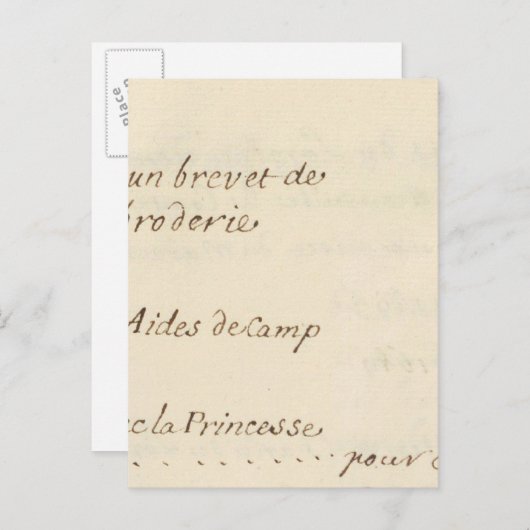 Place
un brevet de
broderie
Aides de Camp
la Princesse
. . . . . . . . . . . . . . pour